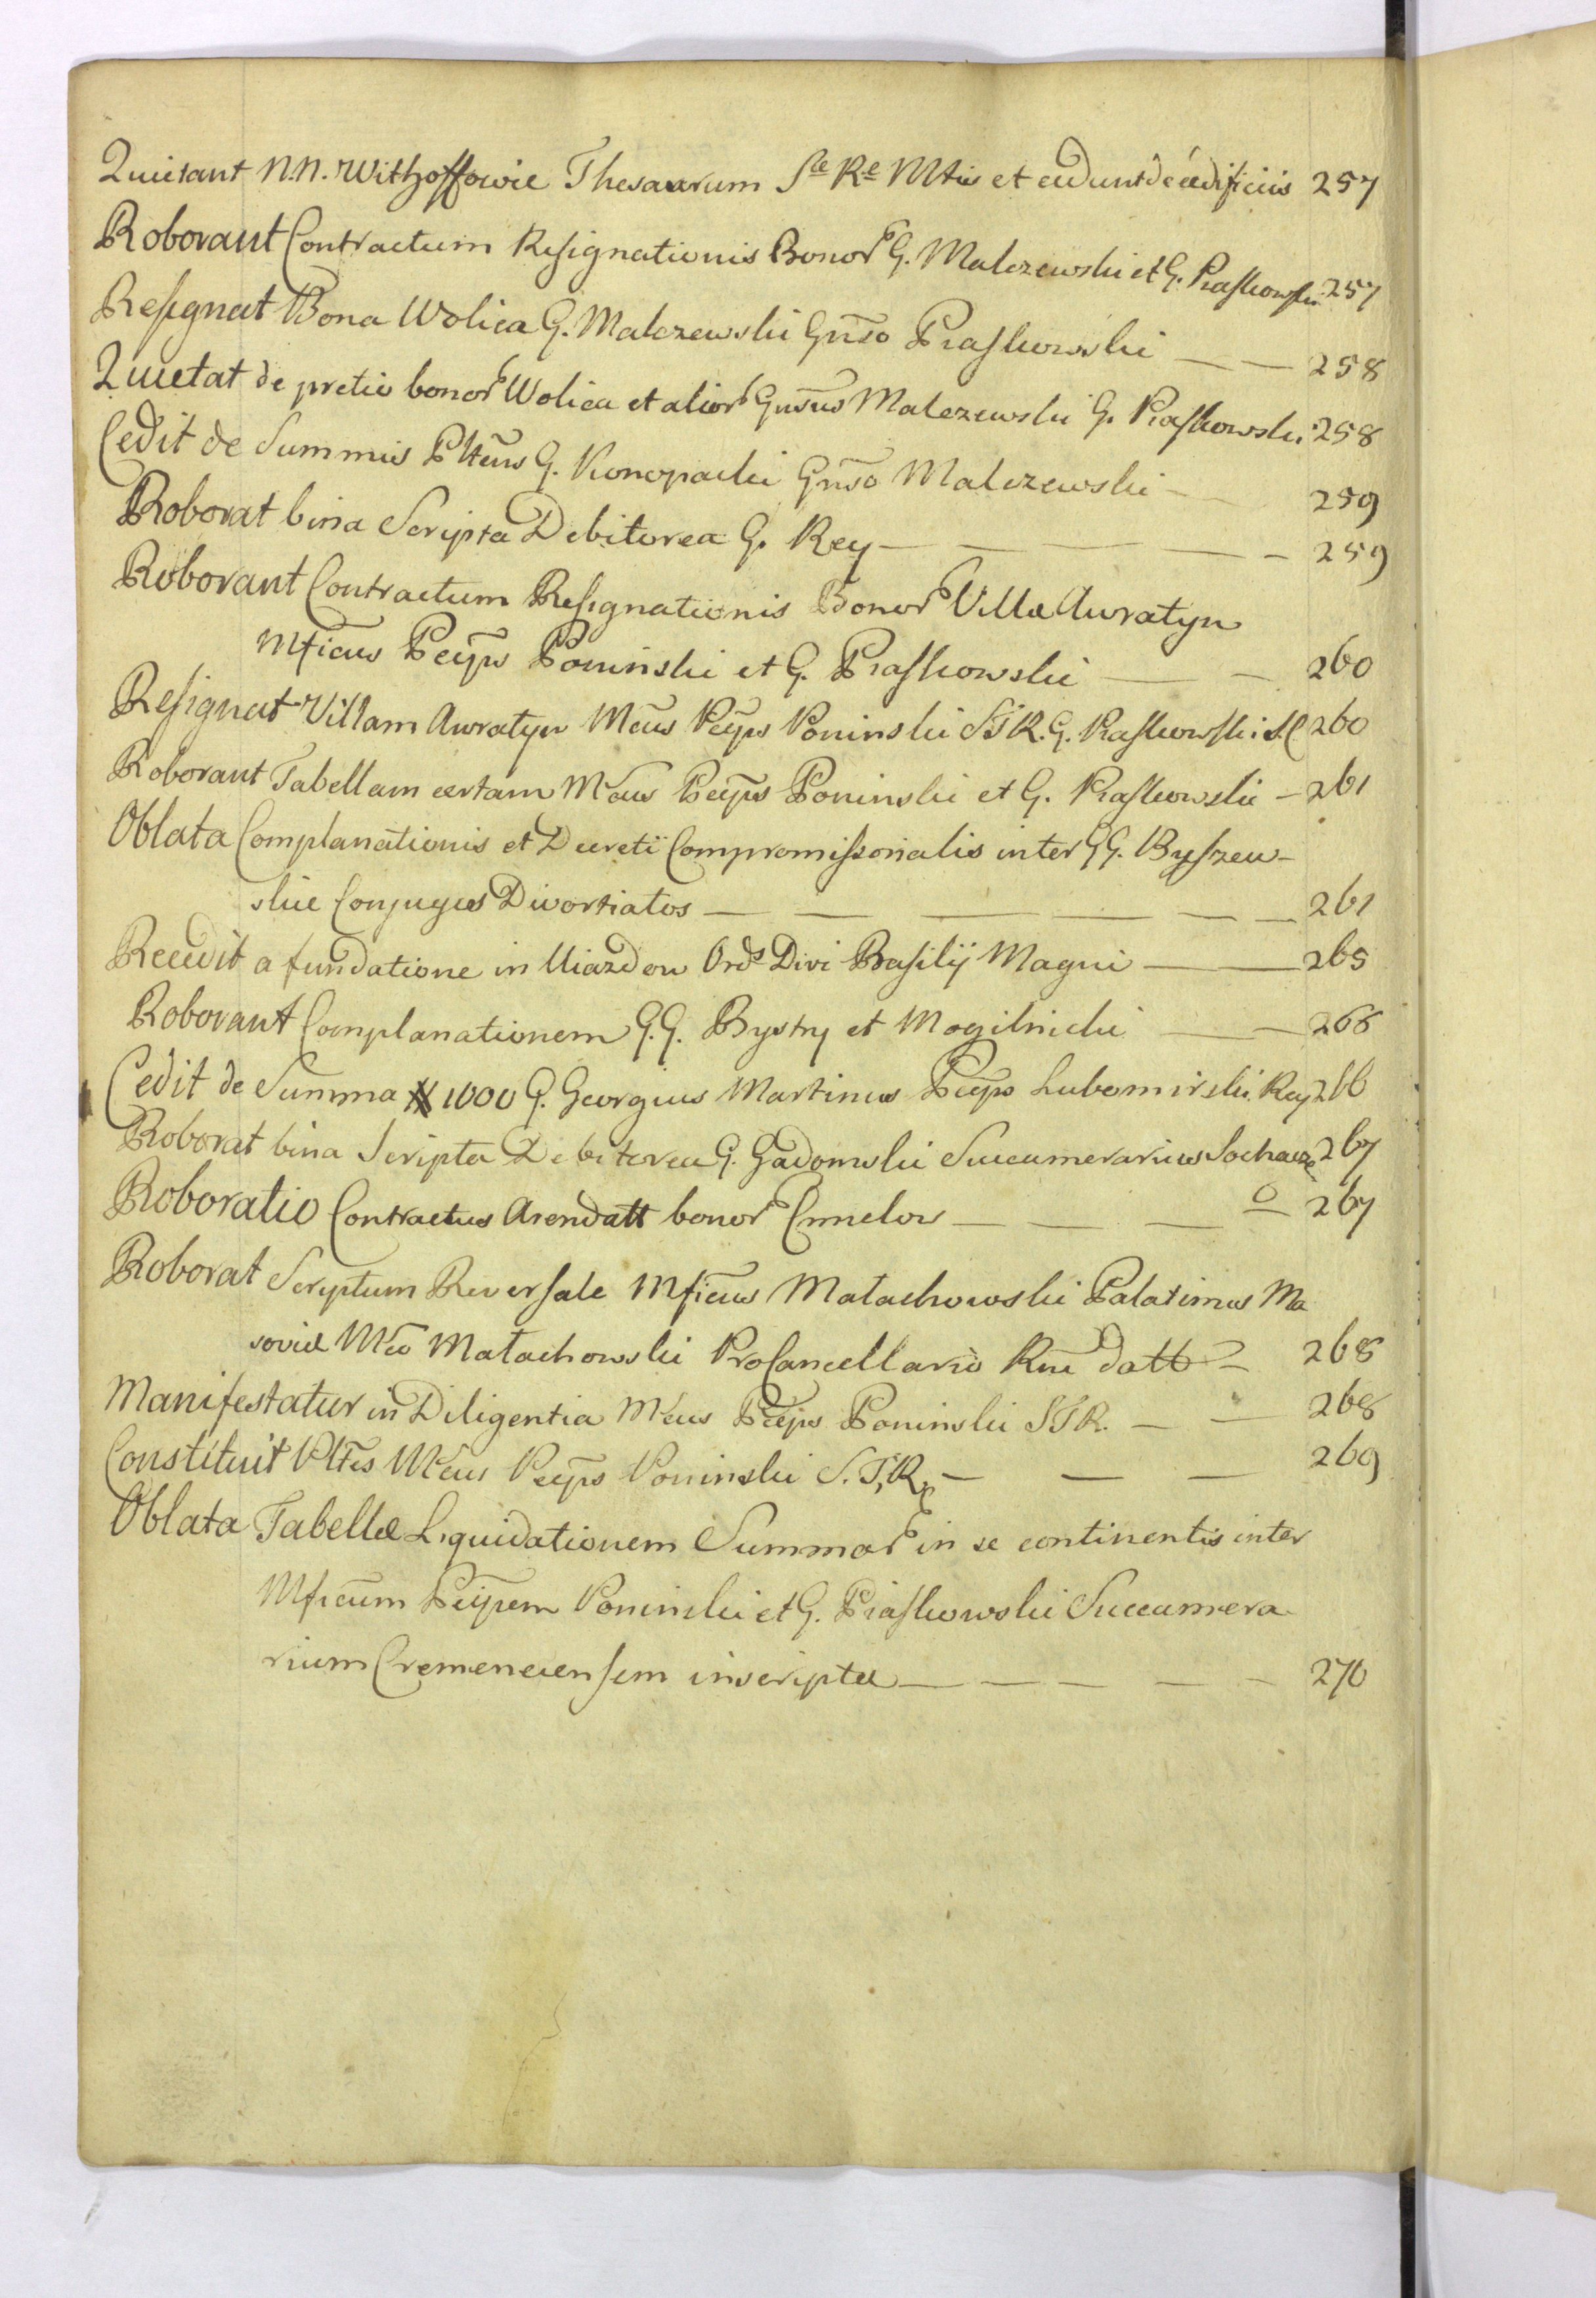 Quietant N.N. Withoffowie Thesaurum Sae Rae Mtis et cedunt de aedificiis 257
Roborant Contractum Resignationis Bonor G. Malczewski et G. Piaskowski 257
Resignat Bona Wolica G. Malczewski Gnso Piaskowski — — 258
Quietat de pretio bonor Wolica et alior Gnsus Malczewski G. Piaskowski 258
Cedit de Summis Pltens G. Konopacki Gnso Malczewski — — 259
Roborat bina Scripta Debitorea G. Rey — — — — 259
Roborant Contractum Resignationis Bonor Villae Awratyn
Mficus Pceps Poninski et G. Piaskowski — — 260
Resignat Villam Awratyn Mcus Pceps Poninski STR. G. Piaskowski S.C 260
Roborant Tabellam certam Mcus Pceps Poninski et G. Piaskowski — 261
Oblata Complanationis et Decreti Compromissorialis inter GG. Byszew-
skie Conjuges Divortiatos — — — — — — 261
Recedit a fundatione in Uiazdow Ords Divi Basilij Magni — — 265
Roborant Complanationem G.G. Bystry et Mogilnicki — — 266
Cedit de Summa # 1000 G. Georgius Martinus Pceps Lubomirski. Rey 266
Roborat bina Scripta Debitorea G. Gadomski Succamerarius Sochacze 267
Roboratio Contractus Arendatt bonor Cmielow — — — — 267
Roborat Scriptum Reversale Mficus Małachowski Palatinus Ma
soviae Mco Małachowski ProCancellario Rni datt — 268
Manifestatur in Diligentia Mcus Pceps Poninski STR. — — 268
Constituit Pltes Mcus Pceps Poninski S.T.R. — — — 269
Oblata Tabellae Liquidationem Summar in se continentis inter
Mficum Pcipem Poninski et G. Piaskowski Succamera
rium Cremenecensem inscriptae — — — — — 270